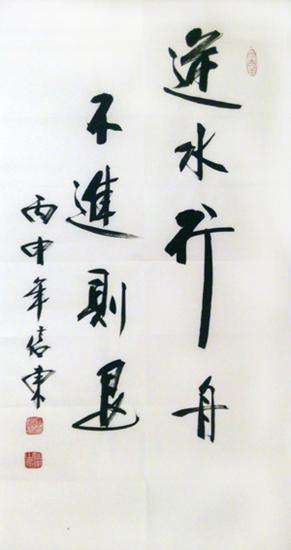 逆水行舟
不進則退
丙申年東